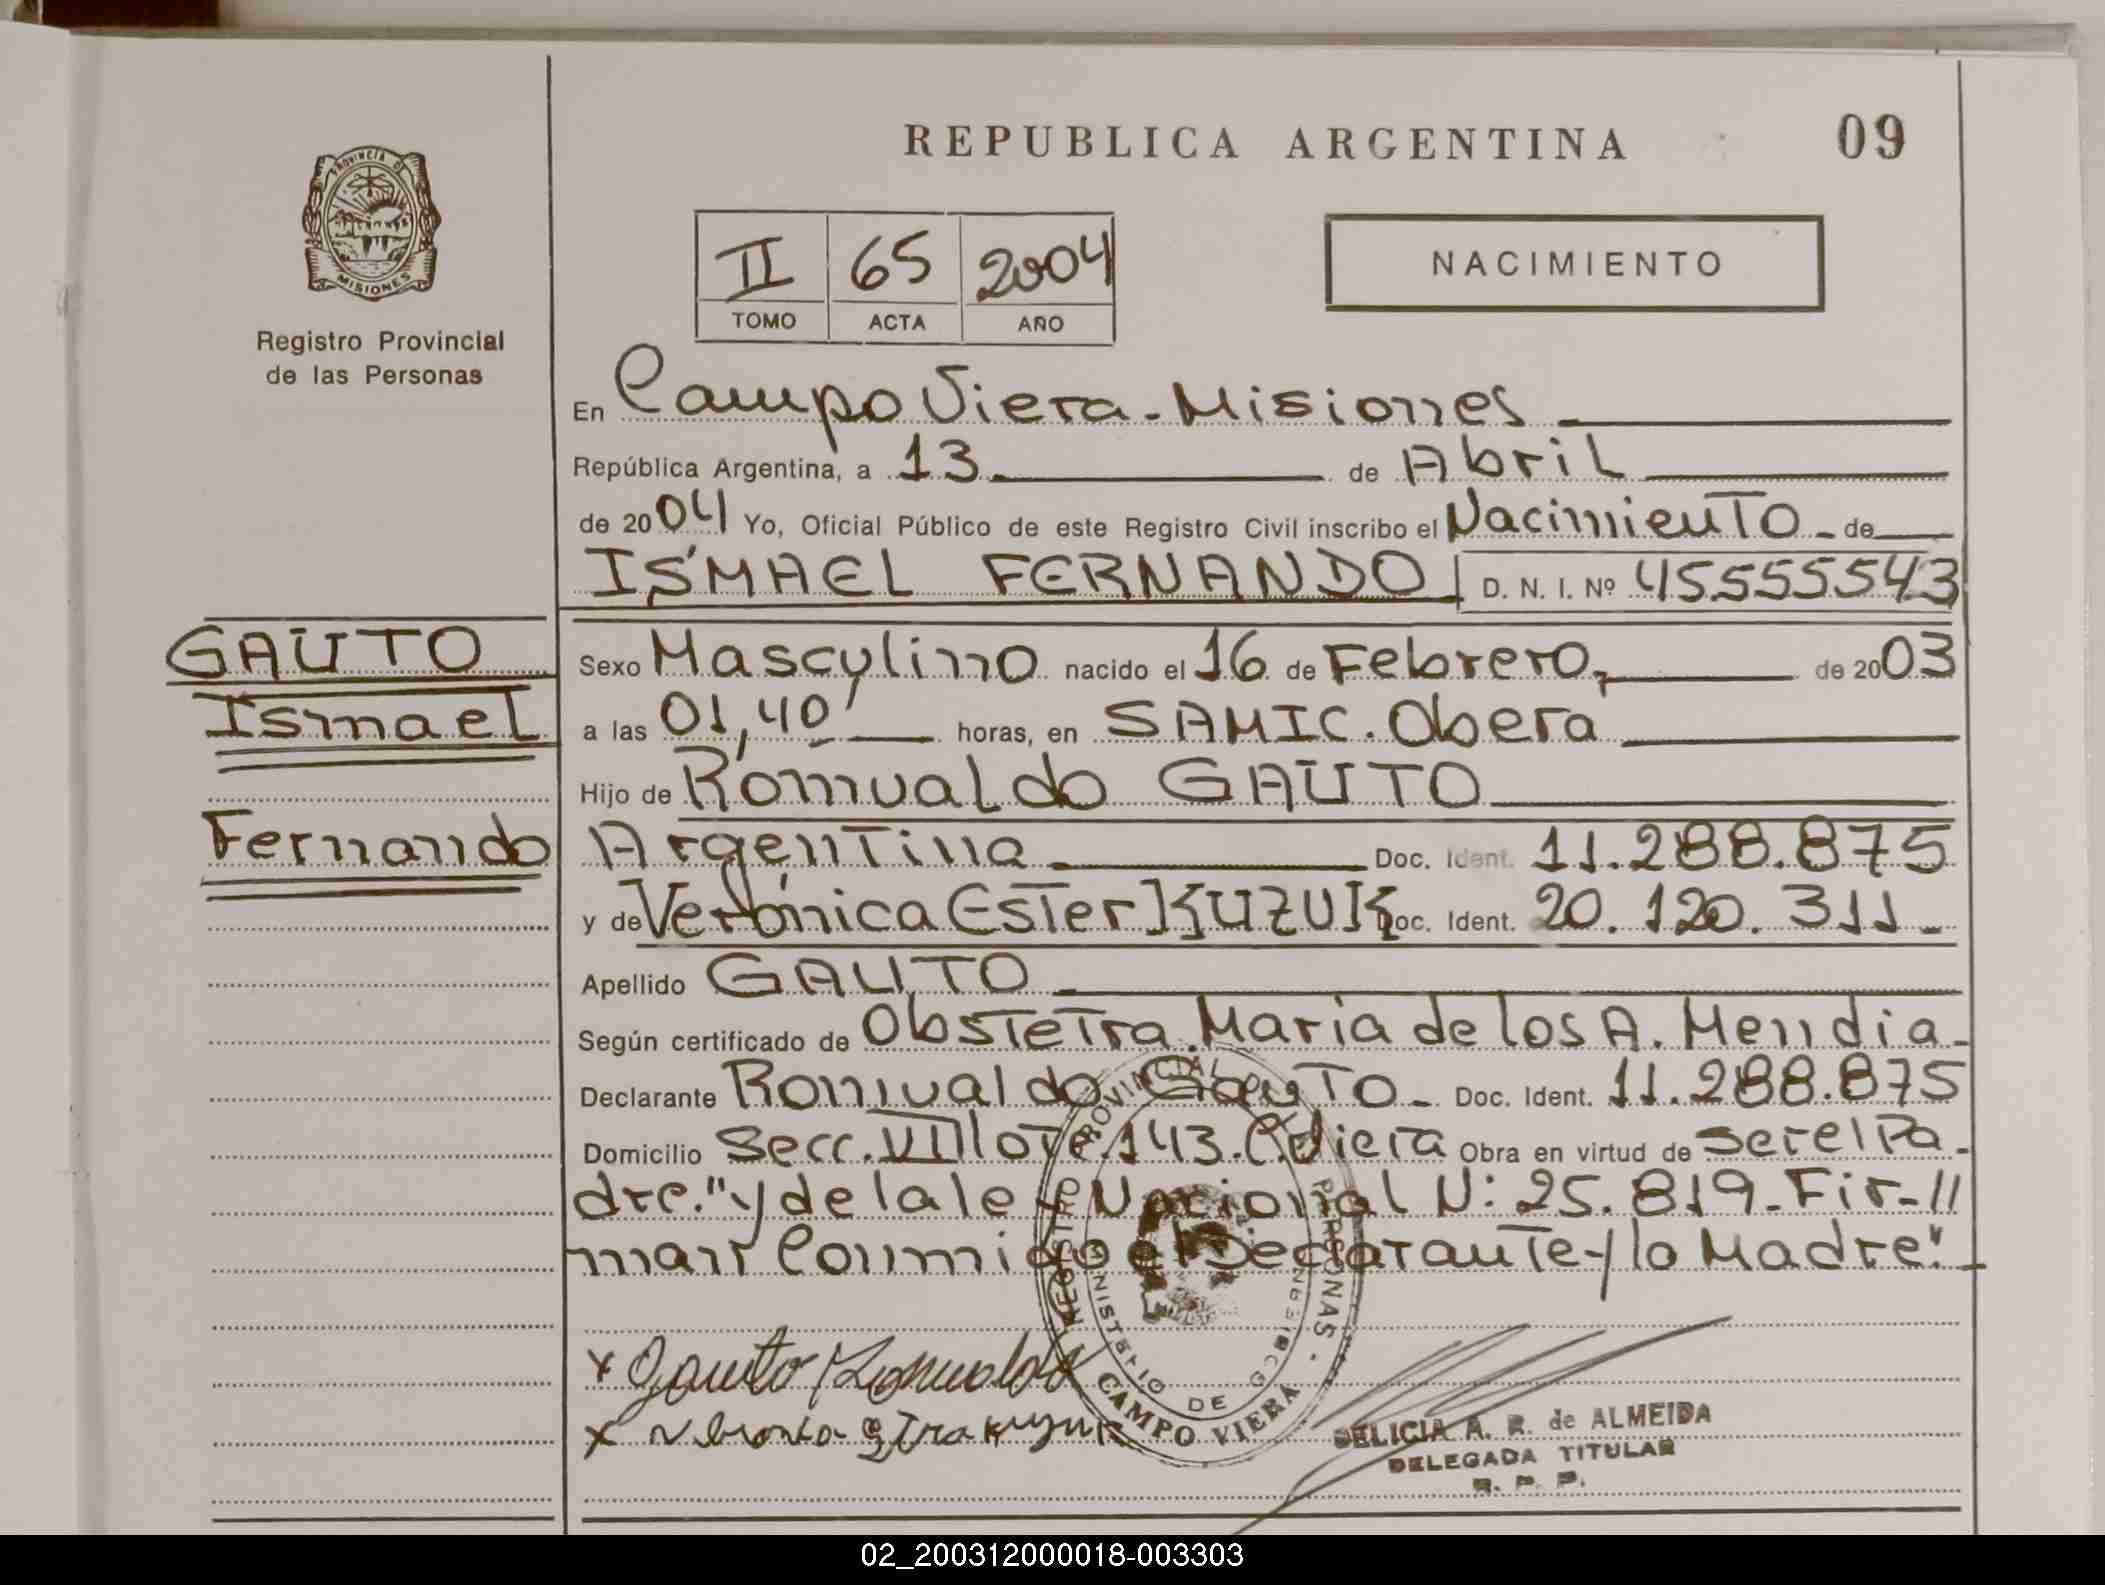 REPUBLICA ARGENTINA
09
PROVINCIA DE
MISIONES
Registro Provincial
de las Personas
II 65 2004
TOMO ACTA AÑO
NACIMIENTO
En Campo Viera - Misiones
República Argentina, a 13 de Abril
de 2004 Yo, Oficial Público de este Registro Civil inscribo el Nacimiento - de
ISMAEL FERNANDO D. N. I. Nº 45.555.543
GAUTO
Ismael
Fernando
Sexo Masculino nacido el 16 de Febrero, de 2003
a las 01,40' horas, en SAMIC. Obera
Hijo de Romualdo GAUTO
Argentina Doc. Ident. 11.288.875
y de Verónica Ester KUZUK Doc. Ident. 20.120.311-
Apellido GAUTO
Según certificado de Obstetra. Maria de los A. Mendia-
Declarante Romualdo Gauto- Doc. Ident. 11.288.875
Domicilio Secc. VIII lote 143. C. Viera Obra en virtud de ser el Pa-
dre." y de la ley Nacional N: 25.819- Fir-//
man Conmigo el Declarante y la Madre."-
REGISTRO PROVINCIAL DE PERSONAS
MINISTERIO DE GOBIERNO
CAMPO VIERA
x Gauto Romualdo
x
DELICIA A. R. de ALMEIDA
DELEGADA TITULAR
R. P. P.
02_200312000018-003303